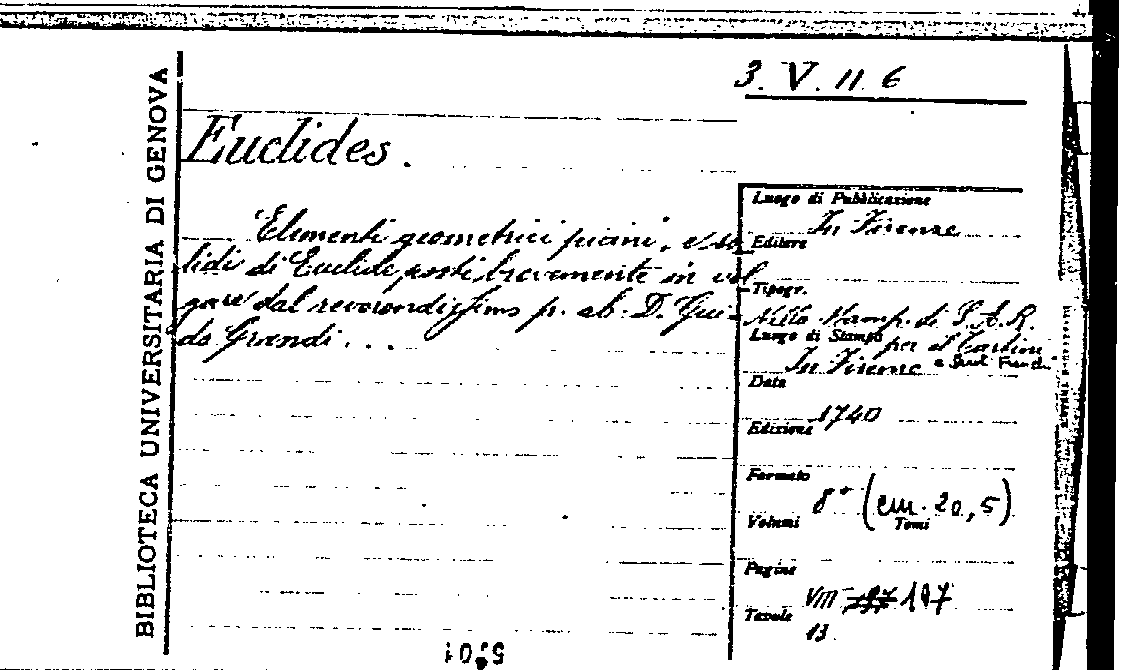 BIBLIOTECA UNIVERSITARIA DI GENOVA
3. V. 11 6
Euclides.
Elementi geometrici piani, e so
lidi di Euclide posti brevemente in vol
gare dal reverendissimo p. ab. D. Gui-
do Grandi...
Luogo di Pubblicazione
In Firenze
Editore
Tipogr.
Nella Stamp. di S.A.R.
Luogo di Stampa
per i Tartini
In Firenze e Franchi
Data
1740
Edizione
Formato
8° (cm. 20,5)
Volumi
Tomi
Pagine
VIII 197
Tavole
13.